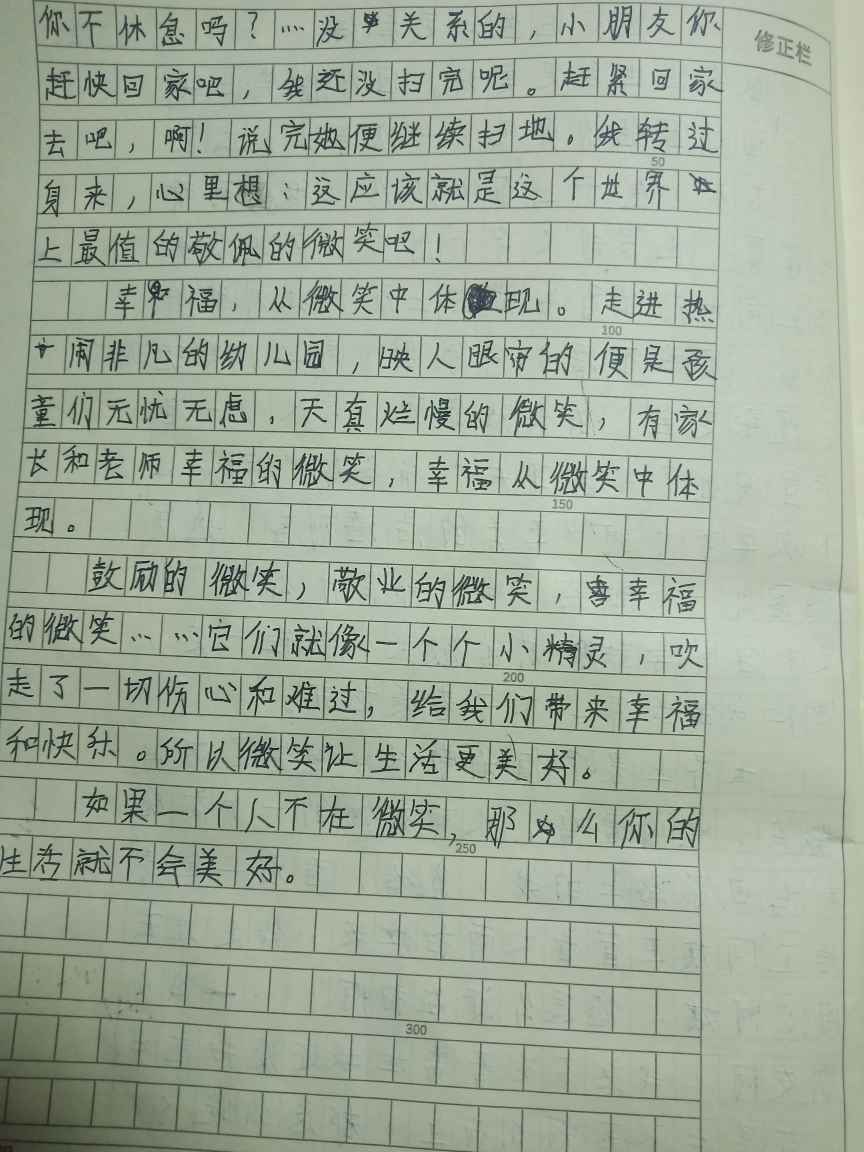 你不休息吗？…没关系的，小朋友你
修正栏
赶快回家吧，我还没扫完呢。赶紧回家
去吧，啊！说完她便继续扫地。我转过
50
身来，心里想：这应该就是这个世界
上最值的敬佩的微笑吧！
幸福，从微笑中体现。走进热
100
闹非凡的幼儿园，映人眼帘的便是孩
童们无忧无虑，天真烂慢的微笑，有家
长和老师幸福的微笑，幸福从微笑中体
150
现。
鼓励的微笑，敬业的微笑，幸福
的微笑……它们就像一个个小精灵，吹
200
走了一切伤心和难过，给我们带来幸福
和快乐。所以微笑让生活更美好。
如果一个人不在微笑，那么你的
250
生活就不会美好。
300